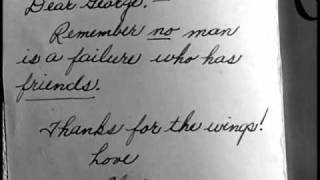 Dear George:—
Remember no man
is a failure who has
friends.
Thanks for the wings!
Love